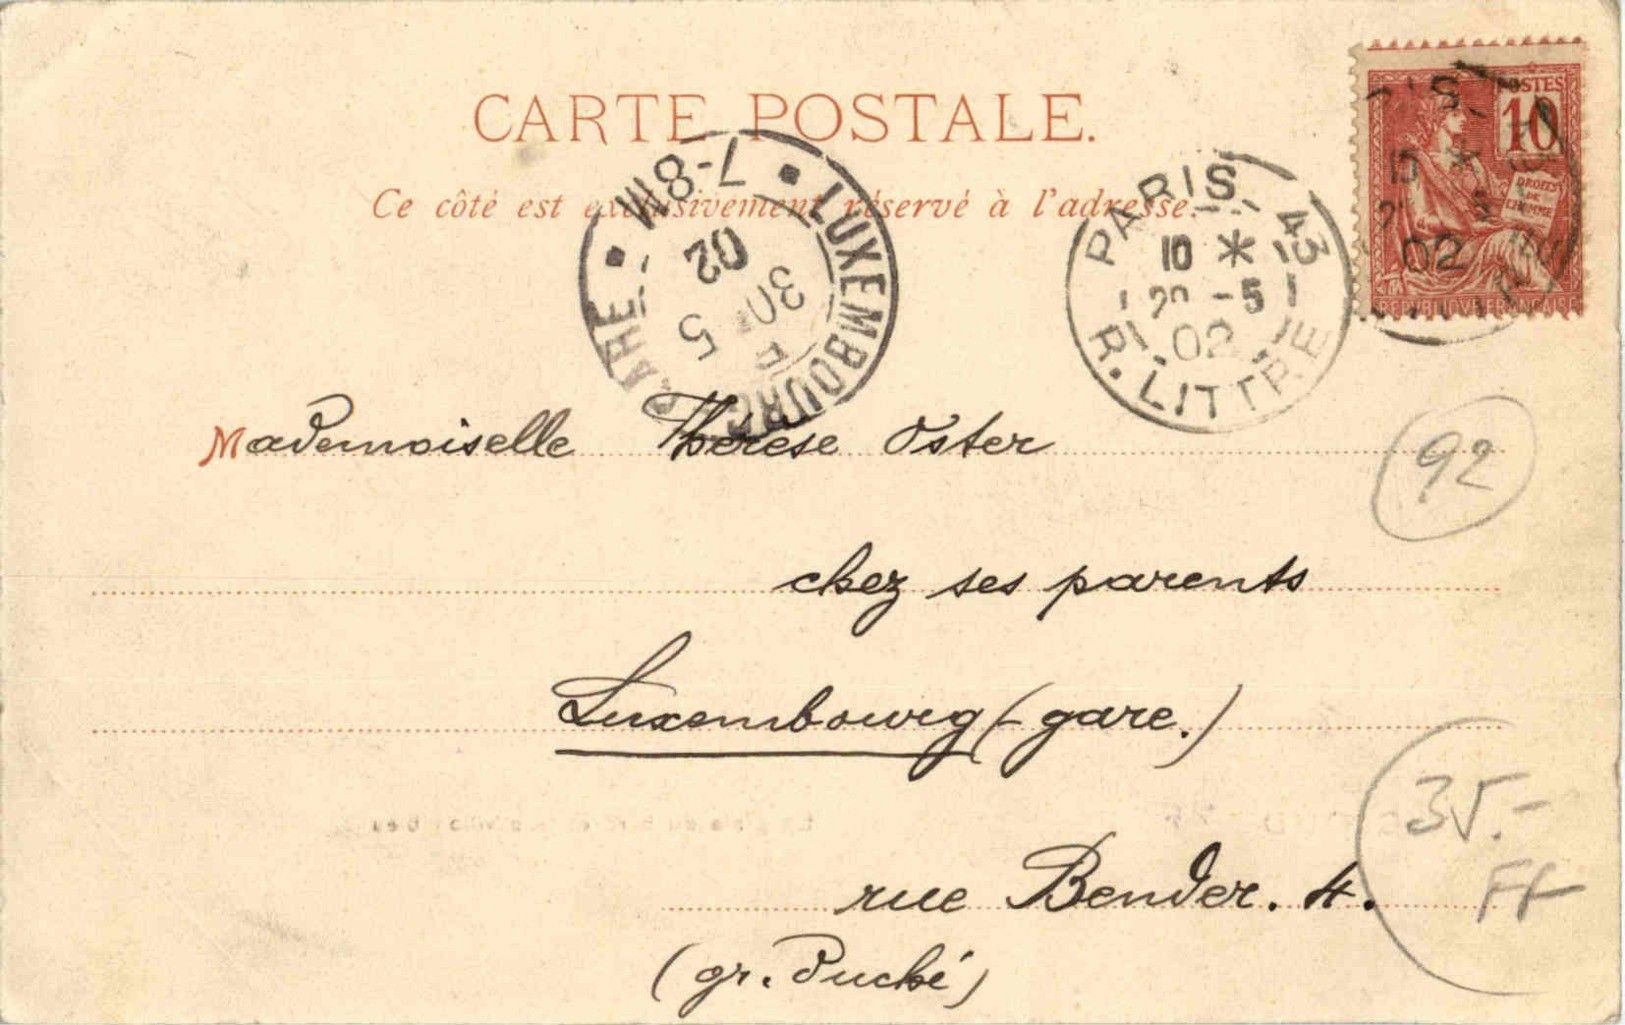 CARTE POSTALE.
Ce côté est exclusivement réservé à l'adresse.
7-8M
LUXEMBOURG
02
30
5
PARIS 43
10 *
20 -5
02
R. LITTRE
POSTES
10
DROITS
DE
L'HOMME
REPUBLIQUE FRANCAISE
02
Mademoiselle Thérèse Oster
92
chez ses parents
Luxembourg (-gare.)
35.-
FF
rue Bender. 4.
(gr. Duché)